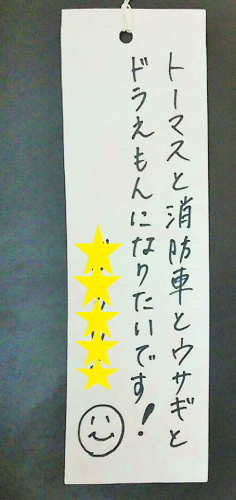 トーマスと消防車とウサギと
ドラえもんになりたいです!